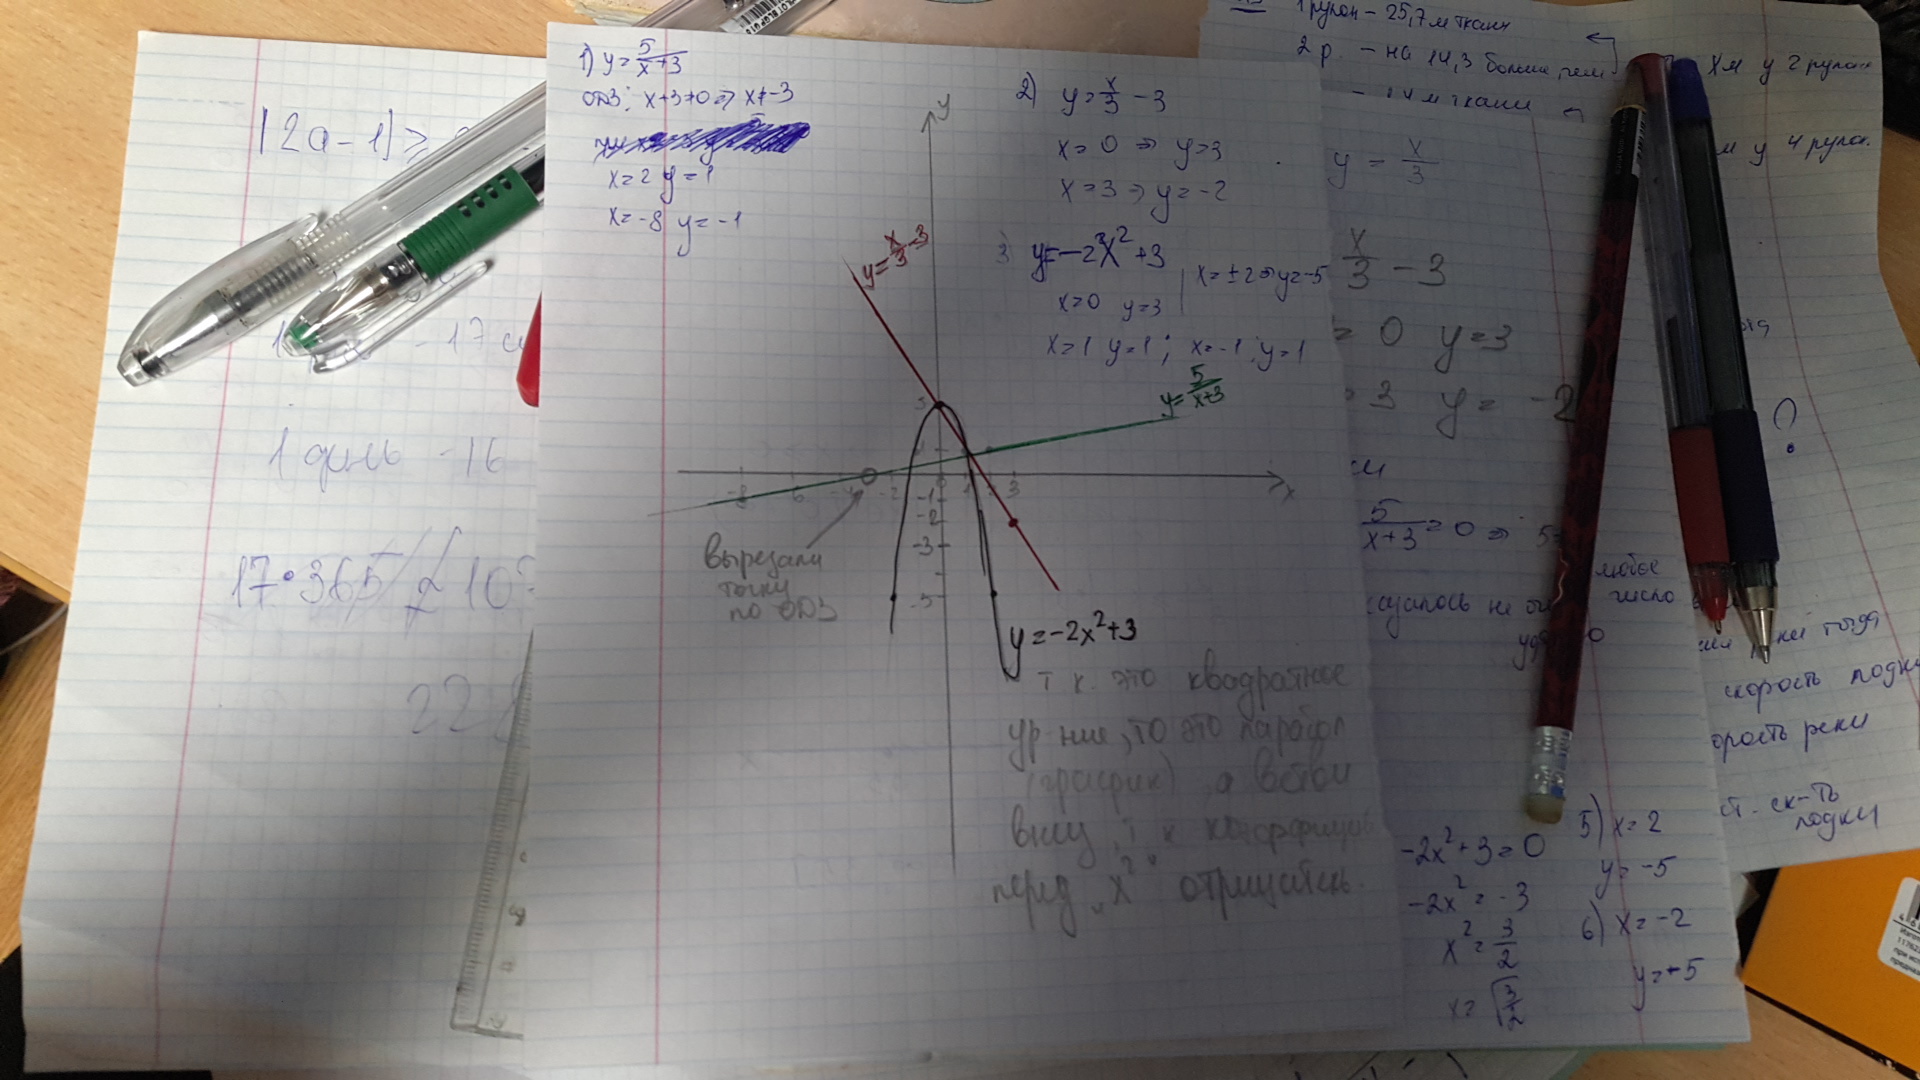 1) y = 5/(x+3)
ОДЗ: x+3≠0 ⇒ x≠-3
x=2 y=1
x=-8 y=-1
2) y = x/3 - 3
x=0 ⇒ y=3
x=3 ⇒ y=-2
3) y=-2x²+3
x=0 y=3
x=±2⇒y=-5
x=1 y=1; x=-1 y=1
y
y = x/3 - 3
y = 5/(x+3)
3
-8 6 -4 -2 0 1 3
x
-1
-2
-3
-5
вырезали
точку
по ОДЗ
y=-2x²+3
т к. это квадратное
ур-ние, то это парабол
(график), а ветви
вниз, т к коэффициен
перед „x²" отрицателен.
|2a-1|≥
-17
1 день -16
17·365
22
1 рулон - 25,7 м ткани
2 р. - на 14,3 больше, чем
м ткани
Xм у 2 рулон
м у 4 рулон.
y = x/3
x/3 - 3
= 0 y=3
= 3 y= -2
5/(x+3) = 0 ⇒ 5
любое
число
?
тогда
скорость лодки
орость реки
ск-ть
лодки
-2x²+3=0
-2x²=-3
x²=3/2
x=√3/2
5) x=2
y=-5
6) x=-2
y=-5